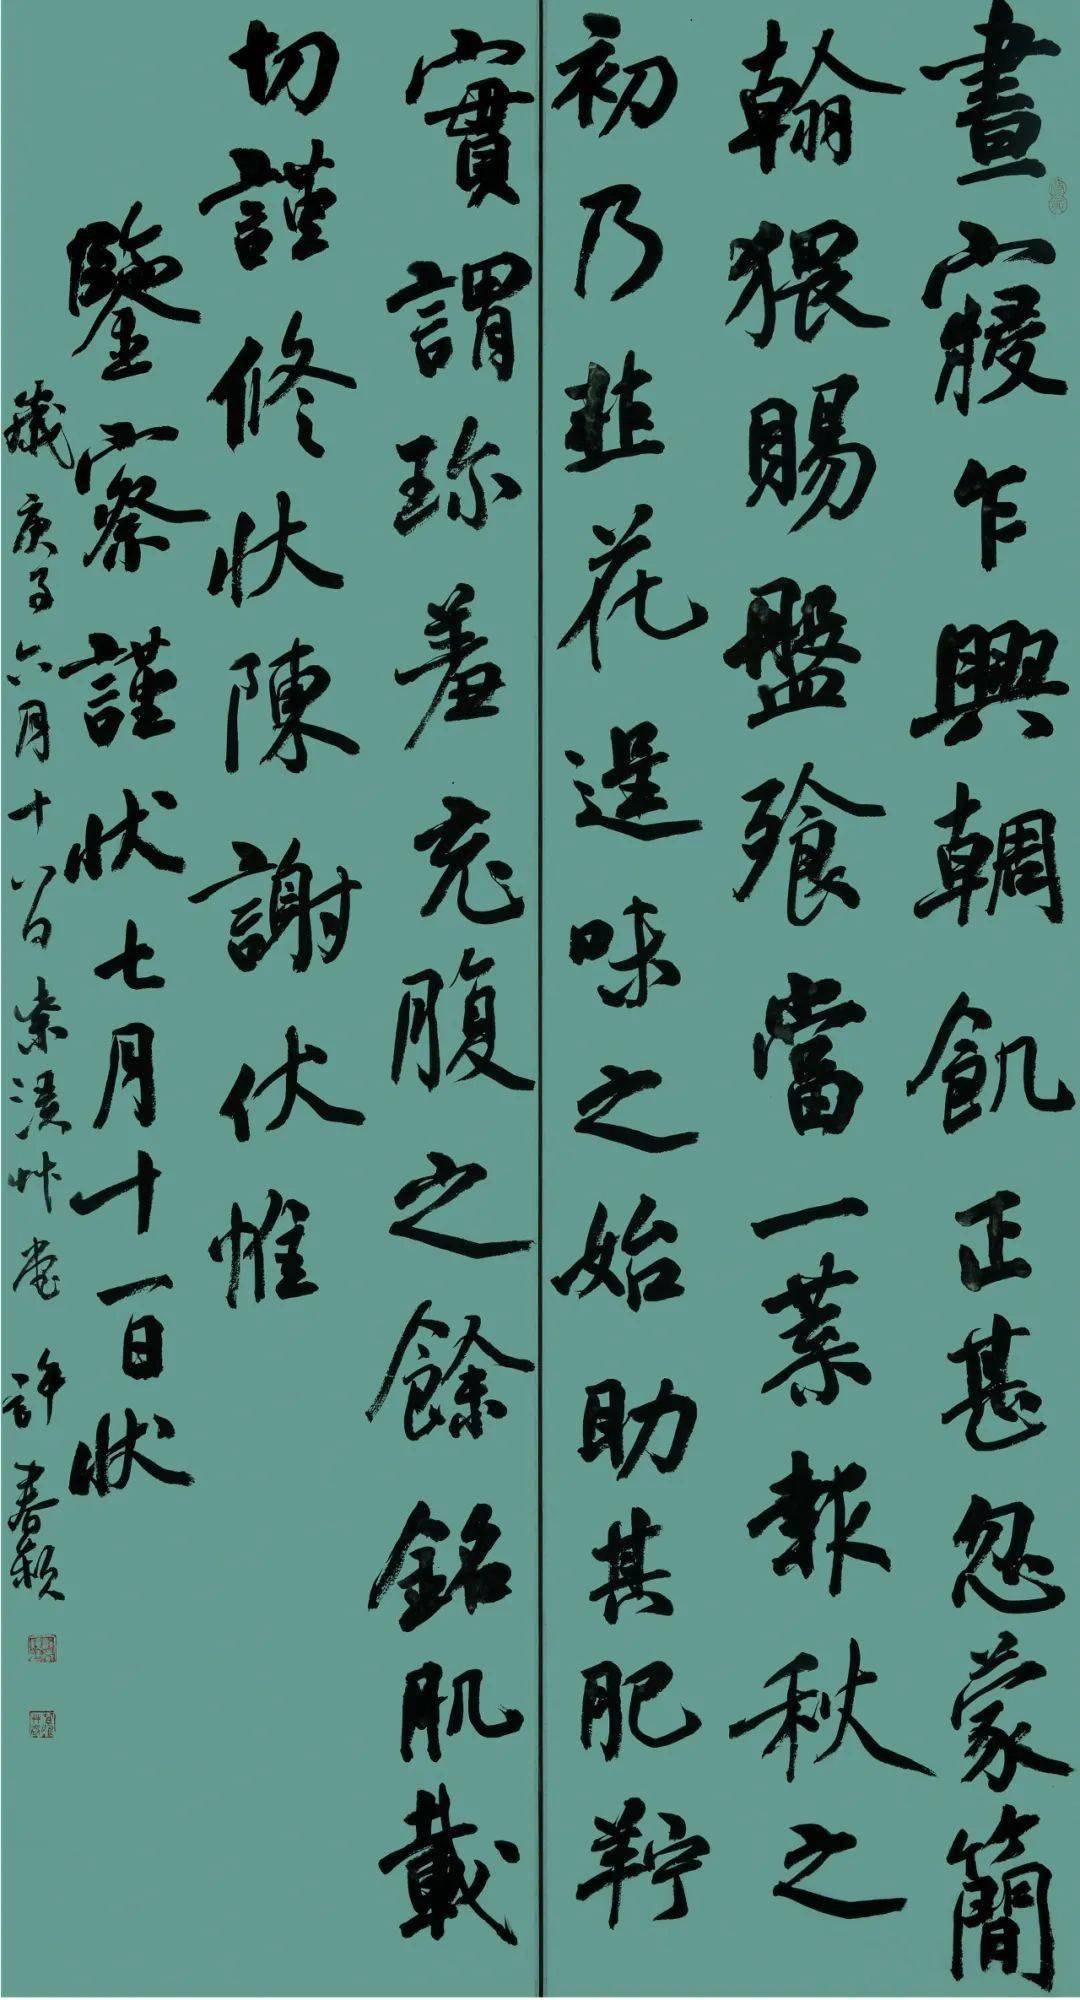 晝寢乍興輖飢正甚忽蒙簡
翰猥賜盤飱當一葉報秋之
初乃韭花逞味之始助其肥羜
實謂珍羞充腹之餘銘肌載
切謹修狀陳謝伏惟
鑒察謹狀七月十一日狀
歲庚子六月十八日艸堂許春穎